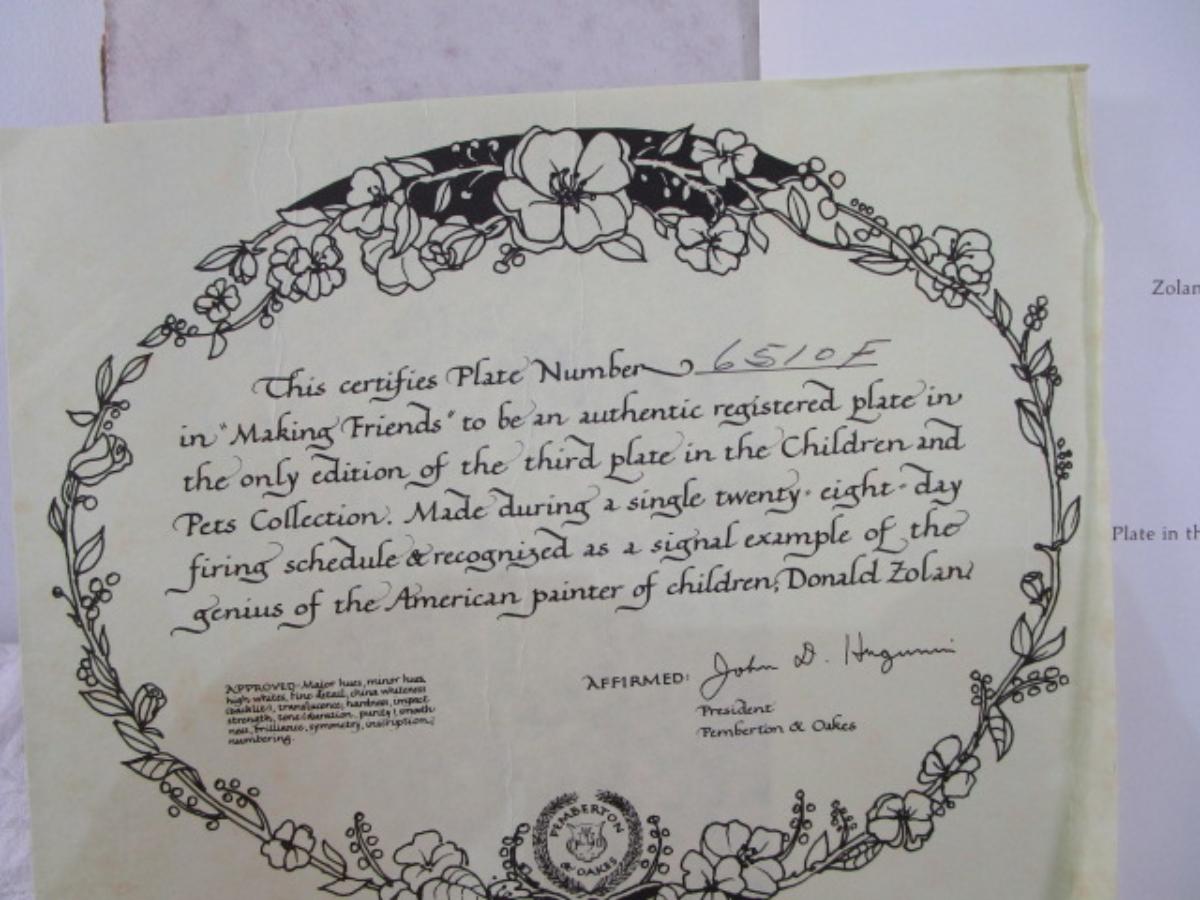 This certifies Plate Number 6510F
in "Making Friends" to be an authentic registered plate in
the only edition of the third plate in the Children and
Pets Collection. Made during a single twenty-eight-day
firing schedule & recognized as a signal example of the
genius of the American painter of children, Donald Zolan.
APPROVED: Major hues, minor hues,
high whites, fine detail, china whiteness
(backlit), translucence, hardness, impact
strength, tone (duration, purity), smooth-
ness, brilliance, symmetry, inscription,
numbering.
AFFIRMED: John D. Hugunin
President
Pemberton & Oakes
PEMBERTON
& OAKES
Zolan
Plate in th